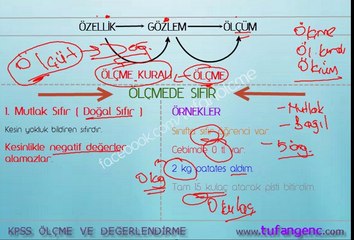 ÖZELLİK → GÖZLEM → ÖLÇÜM
Ölçüt
ÖLÇME KURALI ÖLÇME
Ölçme
ÖLÇMEDE SIFIR
1. Mutlak Sıfır ( Doğal Sıfır )
Kesin yokluk bildiren sıfırdır.
Kesinlikle negatif değerler
alamazlar.
ÖRNEKLER
Sınıfta sıfır öğrenci var.
Cebimde 0 tl var.
2 kg patates aldım.
Tam 15 kulaç atarak pisti bitirdim.
0 kg
0 kulaç
- Mutlak
- Bağıl
facebook.com
KPSS ÖLÇME VE DEĞERLENDİRME
www.tufangenc.com